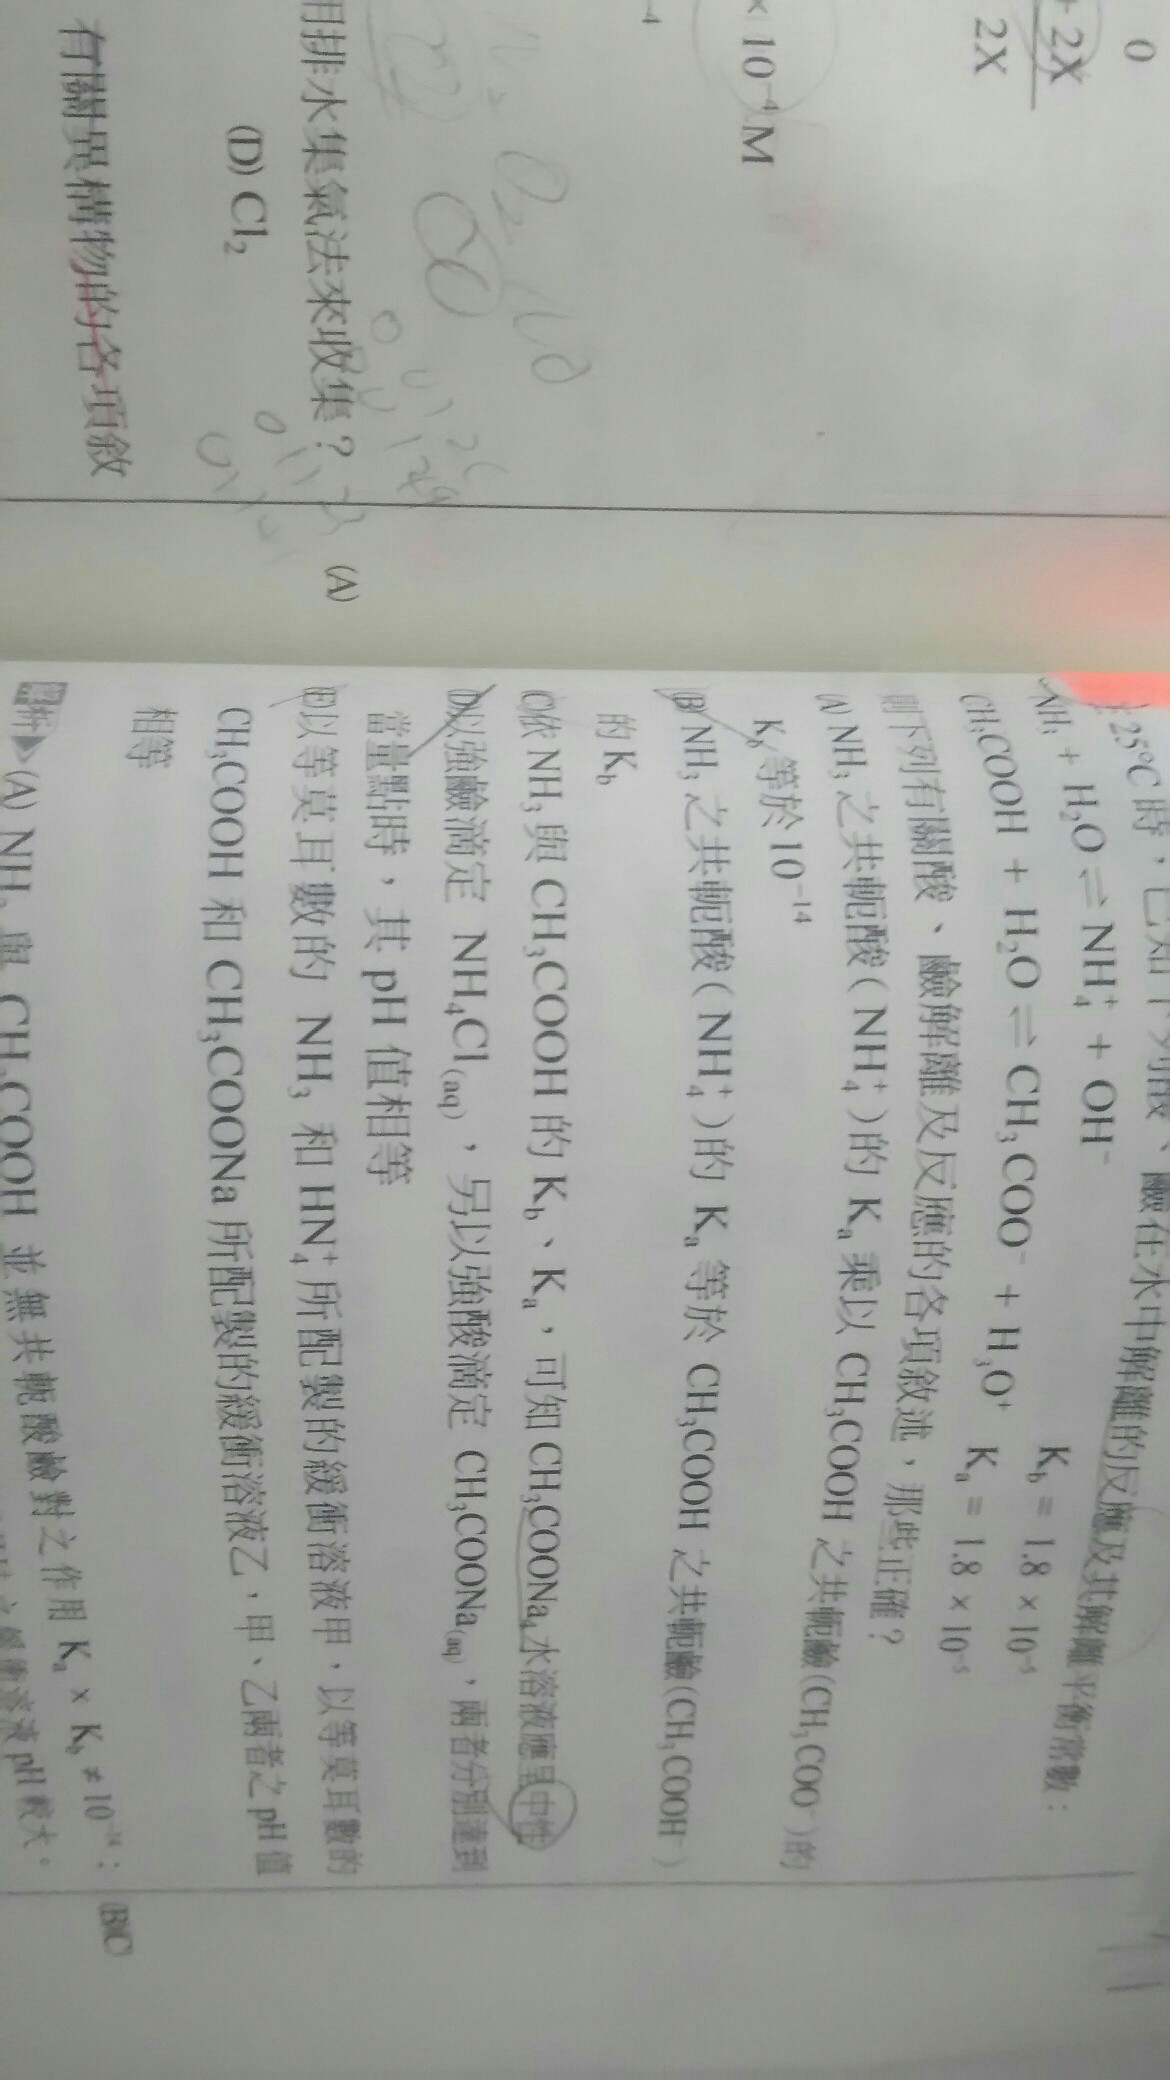 0
+ 2X
2X
× 10⁻⁴ M
-4
O₂
CO
用排水集氣法來收集?
(D) Cl₂
(A)
有關異構物的各項敘
25°C時,已知下列酸、鹼在水中解離的反應及其解離平衡常數:
NH₃ + H₂O ⇌ NH₄⁺ + OH⁻ K_b = 1.8 × 10⁻⁵
CH₃COOH + H₂O ⇌ CH₃COO⁻ + H₃O⁺ K_a = 1.8 × 10⁻⁵
則下列有關酸、鹼解離及反應的各項敘述,那些正確?
(A) NH₃ 之共軛酸(NH₄⁺)的 K_a 乘以 CH₃COOH 之共軛鹼(CH₃COO⁻)的
K_b 等於10⁻¹⁴
(B) NH₃ 之共軛酸(NH₄⁺)的 K_a 等於 CH₃COOH 之共軛鹼(CH₃COOH⁻)
的 K_b
(C)依 NH₃ 與 CH₃COOH 的 K_b、K_a,可知 CH₃COONa 水溶液應呈中性
(D)以強鹼滴定 NH₄Cl(aq),另以強酸滴定 CH₃COONa(aq),兩者分別達到
當量點時,其 pH 值相等
(E)以等莫耳數的 NH₃ 和 HN₄⁺ 所配製的緩衝溶液甲,以等莫耳數的
CH₃COOH 和 CH₃COONa 所配製的緩衝溶液乙,甲、乙兩者之 pH 值
相等
(A) NH₃ 與 CH₃COOH 並無共軛酸鹼對之作用 K_a × K_b ≠ 10⁻¹⁴;
緩衝溶液 pH 較大。